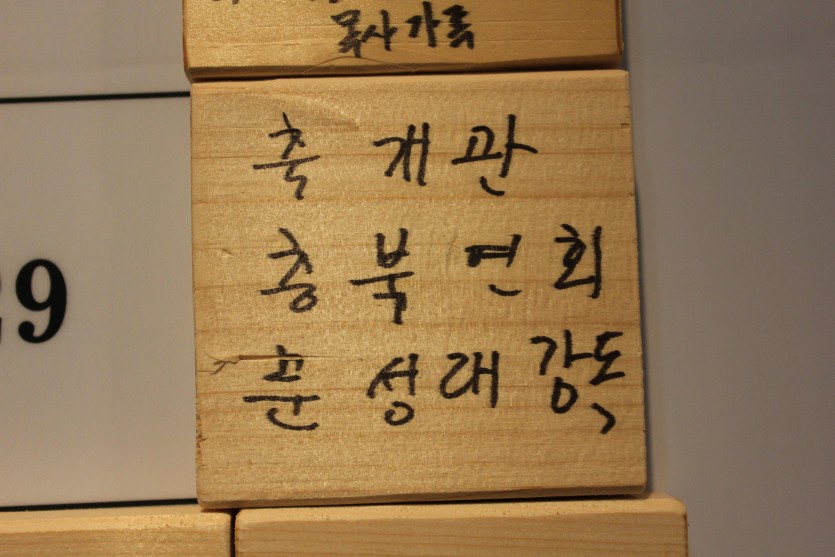 목사가족
축 개관
충북연회
29
문성대 감독